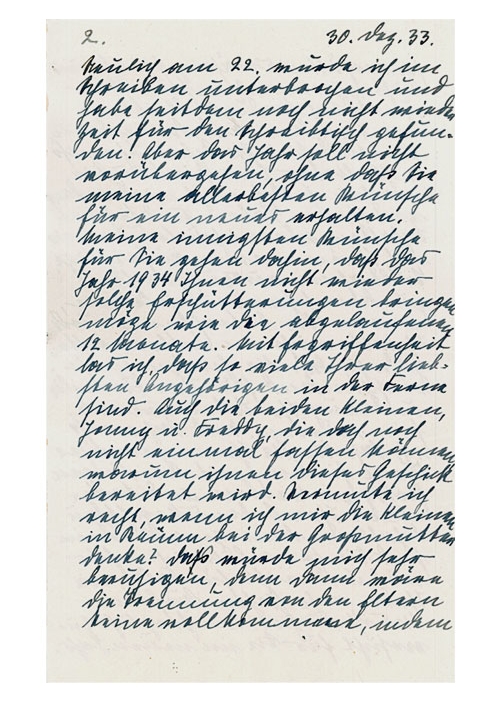 2. 30. Dez. 33.
Neulich am 22. wurde ich im
Schreiben unterbrochen und
habe seitdem noch nicht wieder
Zeit für den Schreibtisch gefun-
den. Aber das Jahr soll nicht
vorübergehen, ohne daß Sie
meine allerbesten Wünsche
für ein neues erhalten.
Meine innigsten Wünsche
für Sie gehen dahin, daß das
Jahr 1934 Ihnen nicht wieder
solche Erschütterungen bringen
möge wie die abgelaufenen
12 Monate. Mit Ergriffenheit
las ich, daß so viele Ihrer lieb-
sten Angehörigen in der Ferne
sind. Auch die beiden Kleinen,
Jonny u. Freddy, die doch noch
nicht einmal fassen können
warum ihnen dieses Geschick
bereitet wird. Vermute ich
recht, wenn ich mir die Kleinen
in bei der Großmutter
denke? Daß würde mich sehr
beruhigen, denn dann wäre
die Trennung von den Eltern
keine vollkommene, indem